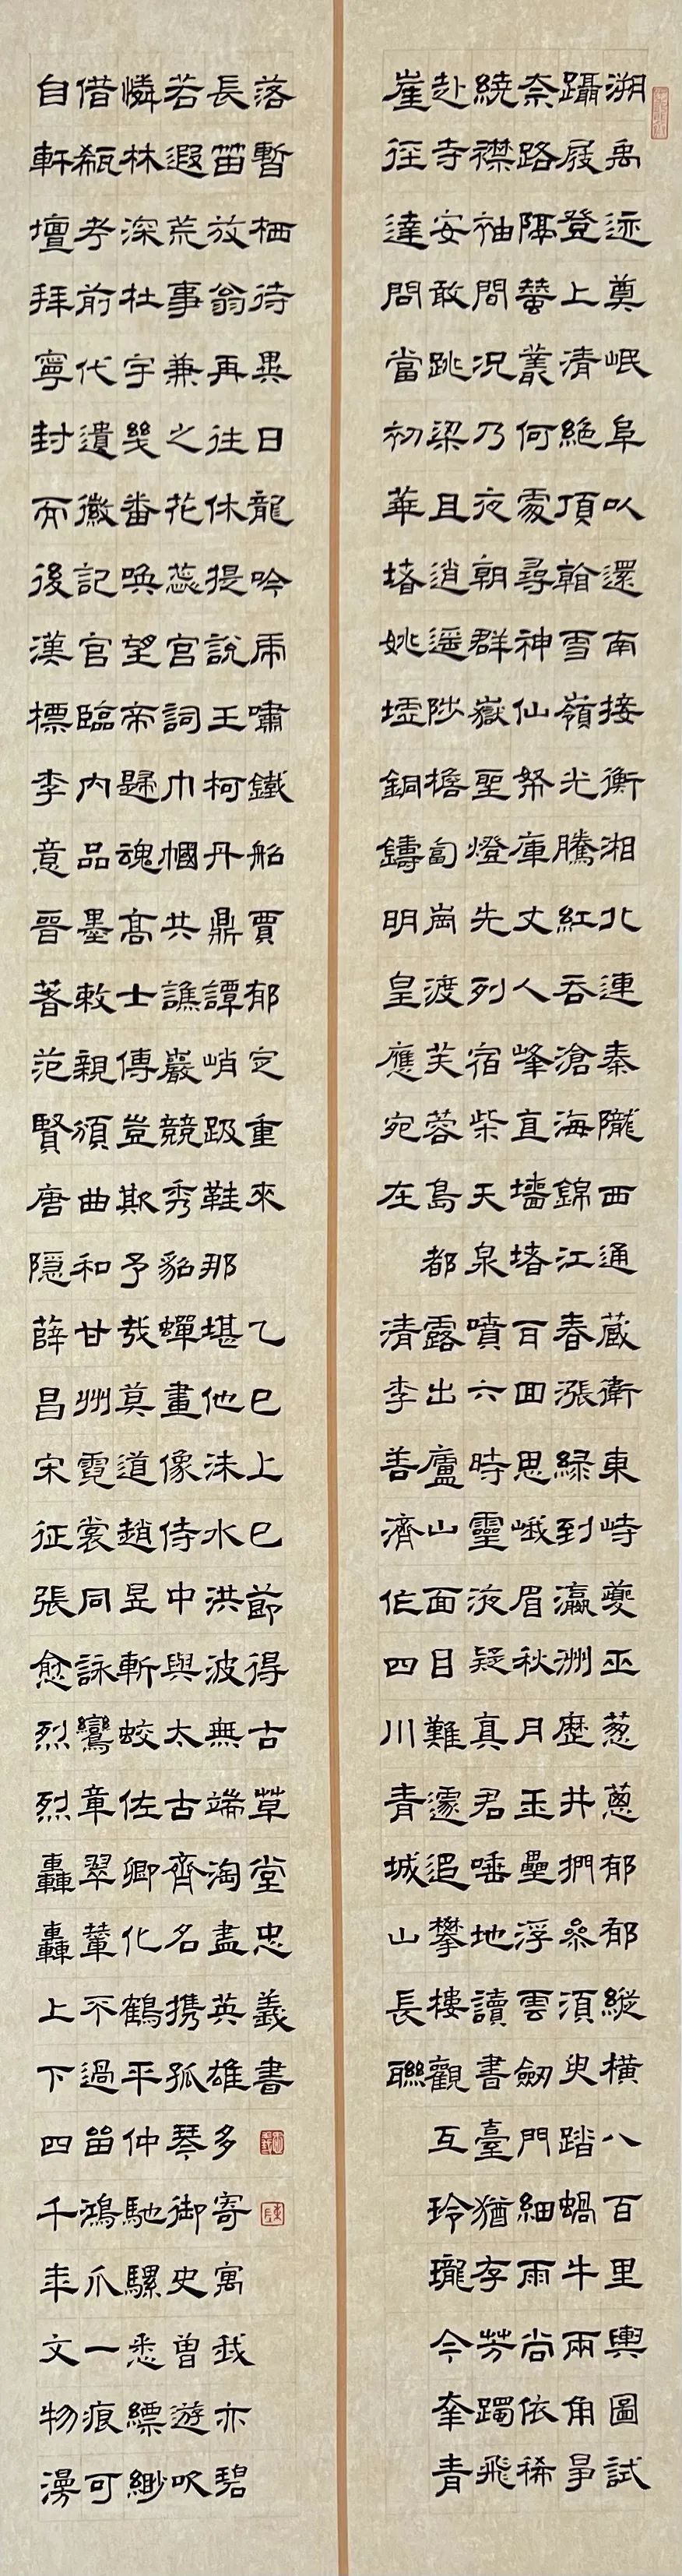 溯禹迹奠岷阜以還南接衡湘北連秦隴西通藏衛東峙夔巫葱蔥郁郁縱橫八百里輿圖試
躡屐登上清絶頂翰雪嶺光騰紅吞滄海錦江春漲綠到瀛洲歷井捫參須臾踏蝸牛兩角爭
奈路隔蠶叢何處尋神仙帑庫丈人峰直墻堵百回思峨眉秋月玉壘浮雲劍門細雨尚依稀
繞襟袖間況乃夜朝群嶽聖燈先列宿柴天泉噴六時靈液疑真君唾地讀書臺猶存芳躅飛
赴寺安敢跳梁且逍遙陟擔匐崗渡芙蓉島都露出廬山面目難遽追攀樓觀互玲瓏今幸青
崖徑達問當初華堵姚墟銅鑄明皇應宛在
清李善濟作四川青城山長聯
自軒壇拜寧封而後漢標李意晉著范賢唐隱薛昌宋征張愈烈烈轟轟上下四千年文物漫
借瓻考前代遺徽記官臨內品墨敕親頒曲和甘州霓裳同詠鸞章翠輦不過留鴻爪一痕可
憐林深杜宇幾番喚望帝歸魂高士傳豈欺予哉莫道趙昱斬蛟佐卿化鶴平仲馳騾悉縹緲
若遐荒事兼之花蕊宮詞巾幗共譙巖競秀貂蟬畫像侍中與太古齊名携孤琴御史曾遊吹
長笛放翁再往休提說王柯丹鼎譚峭趿鞋那堪他沫水洪波無端淘盡英雄多寄寓我亦碧
落暫栖待異日龍吟虎嘯鐵船賈郁定重來
乙巳上巳節得古草堂忠義書